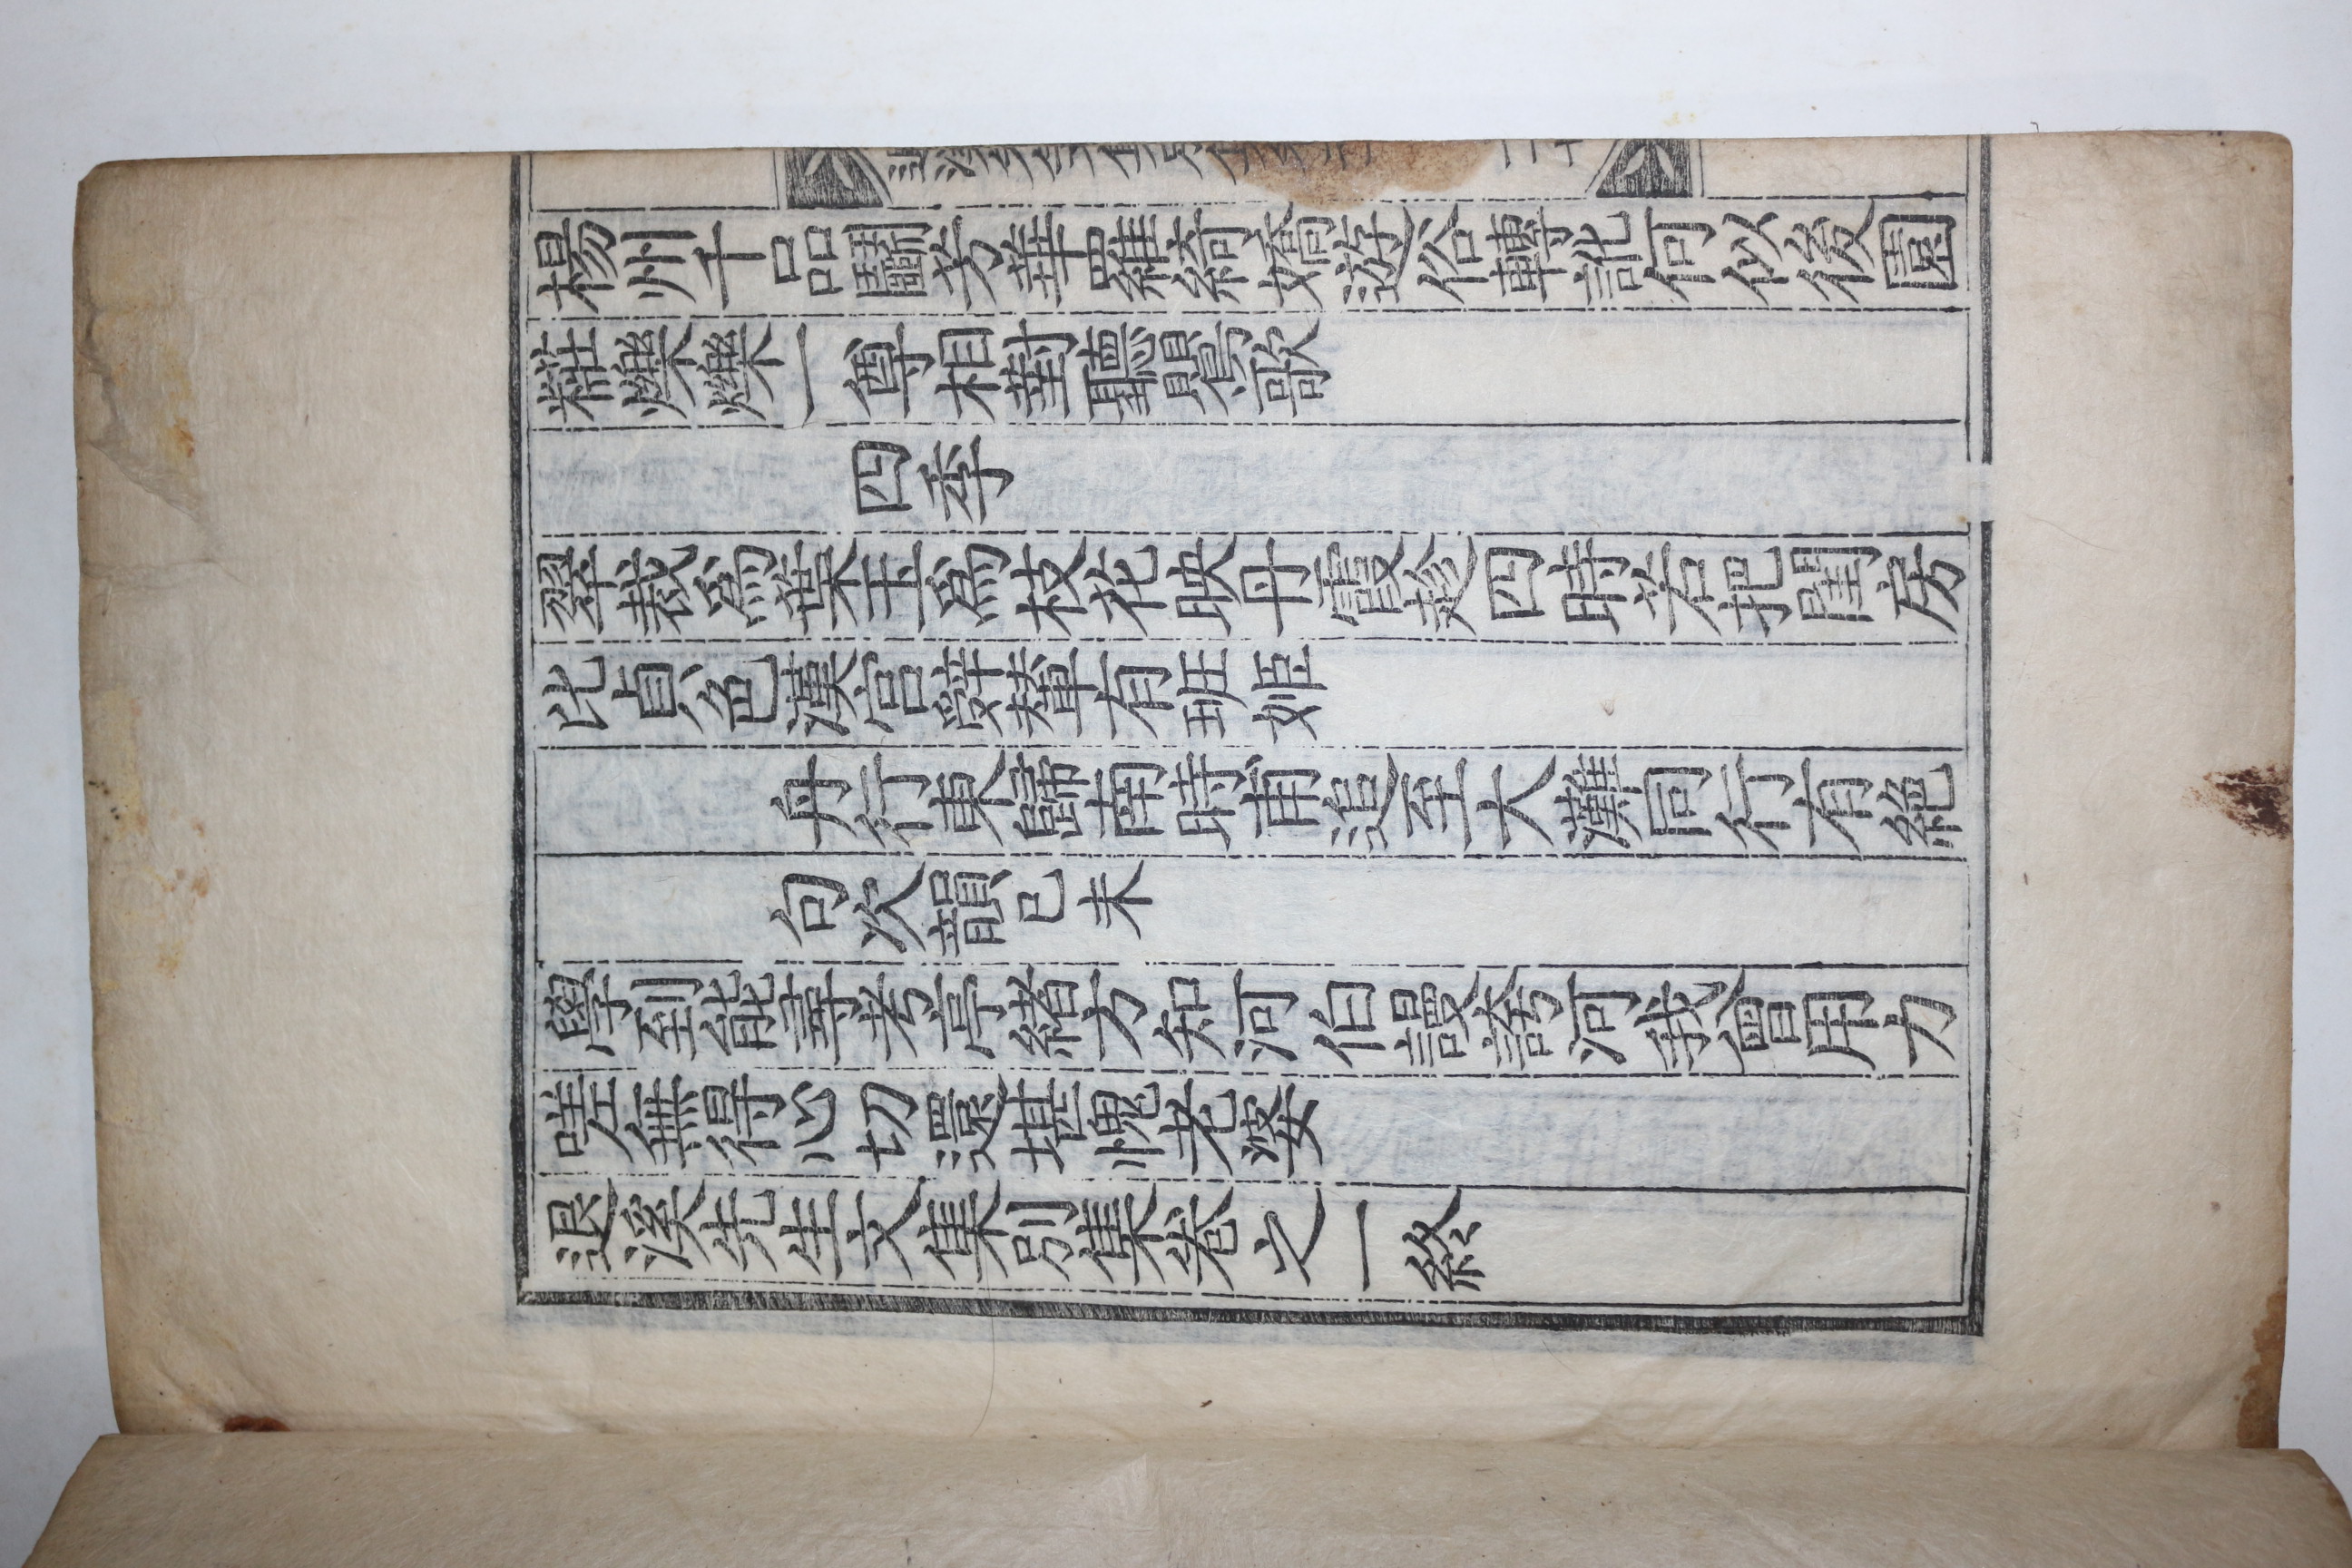 退溪先生文集別集
楊州千品鬭芳華羅綺嬌遊俗轉訛何似後園
糚爍爍一尊相對聽鸎歌
四季
翠裁爲葉玉爲枝花映丹霞趁四時若把閨房
比貞色漢宫辤輦有班姬
舟行東歸南時甫追至大灘同行有絶
句次韻己未
學到能尋考亭緖方知河伯謾誇河我曾用力
嗟無得心切還堪愧老婆
退溪先生文集別集卷之一終